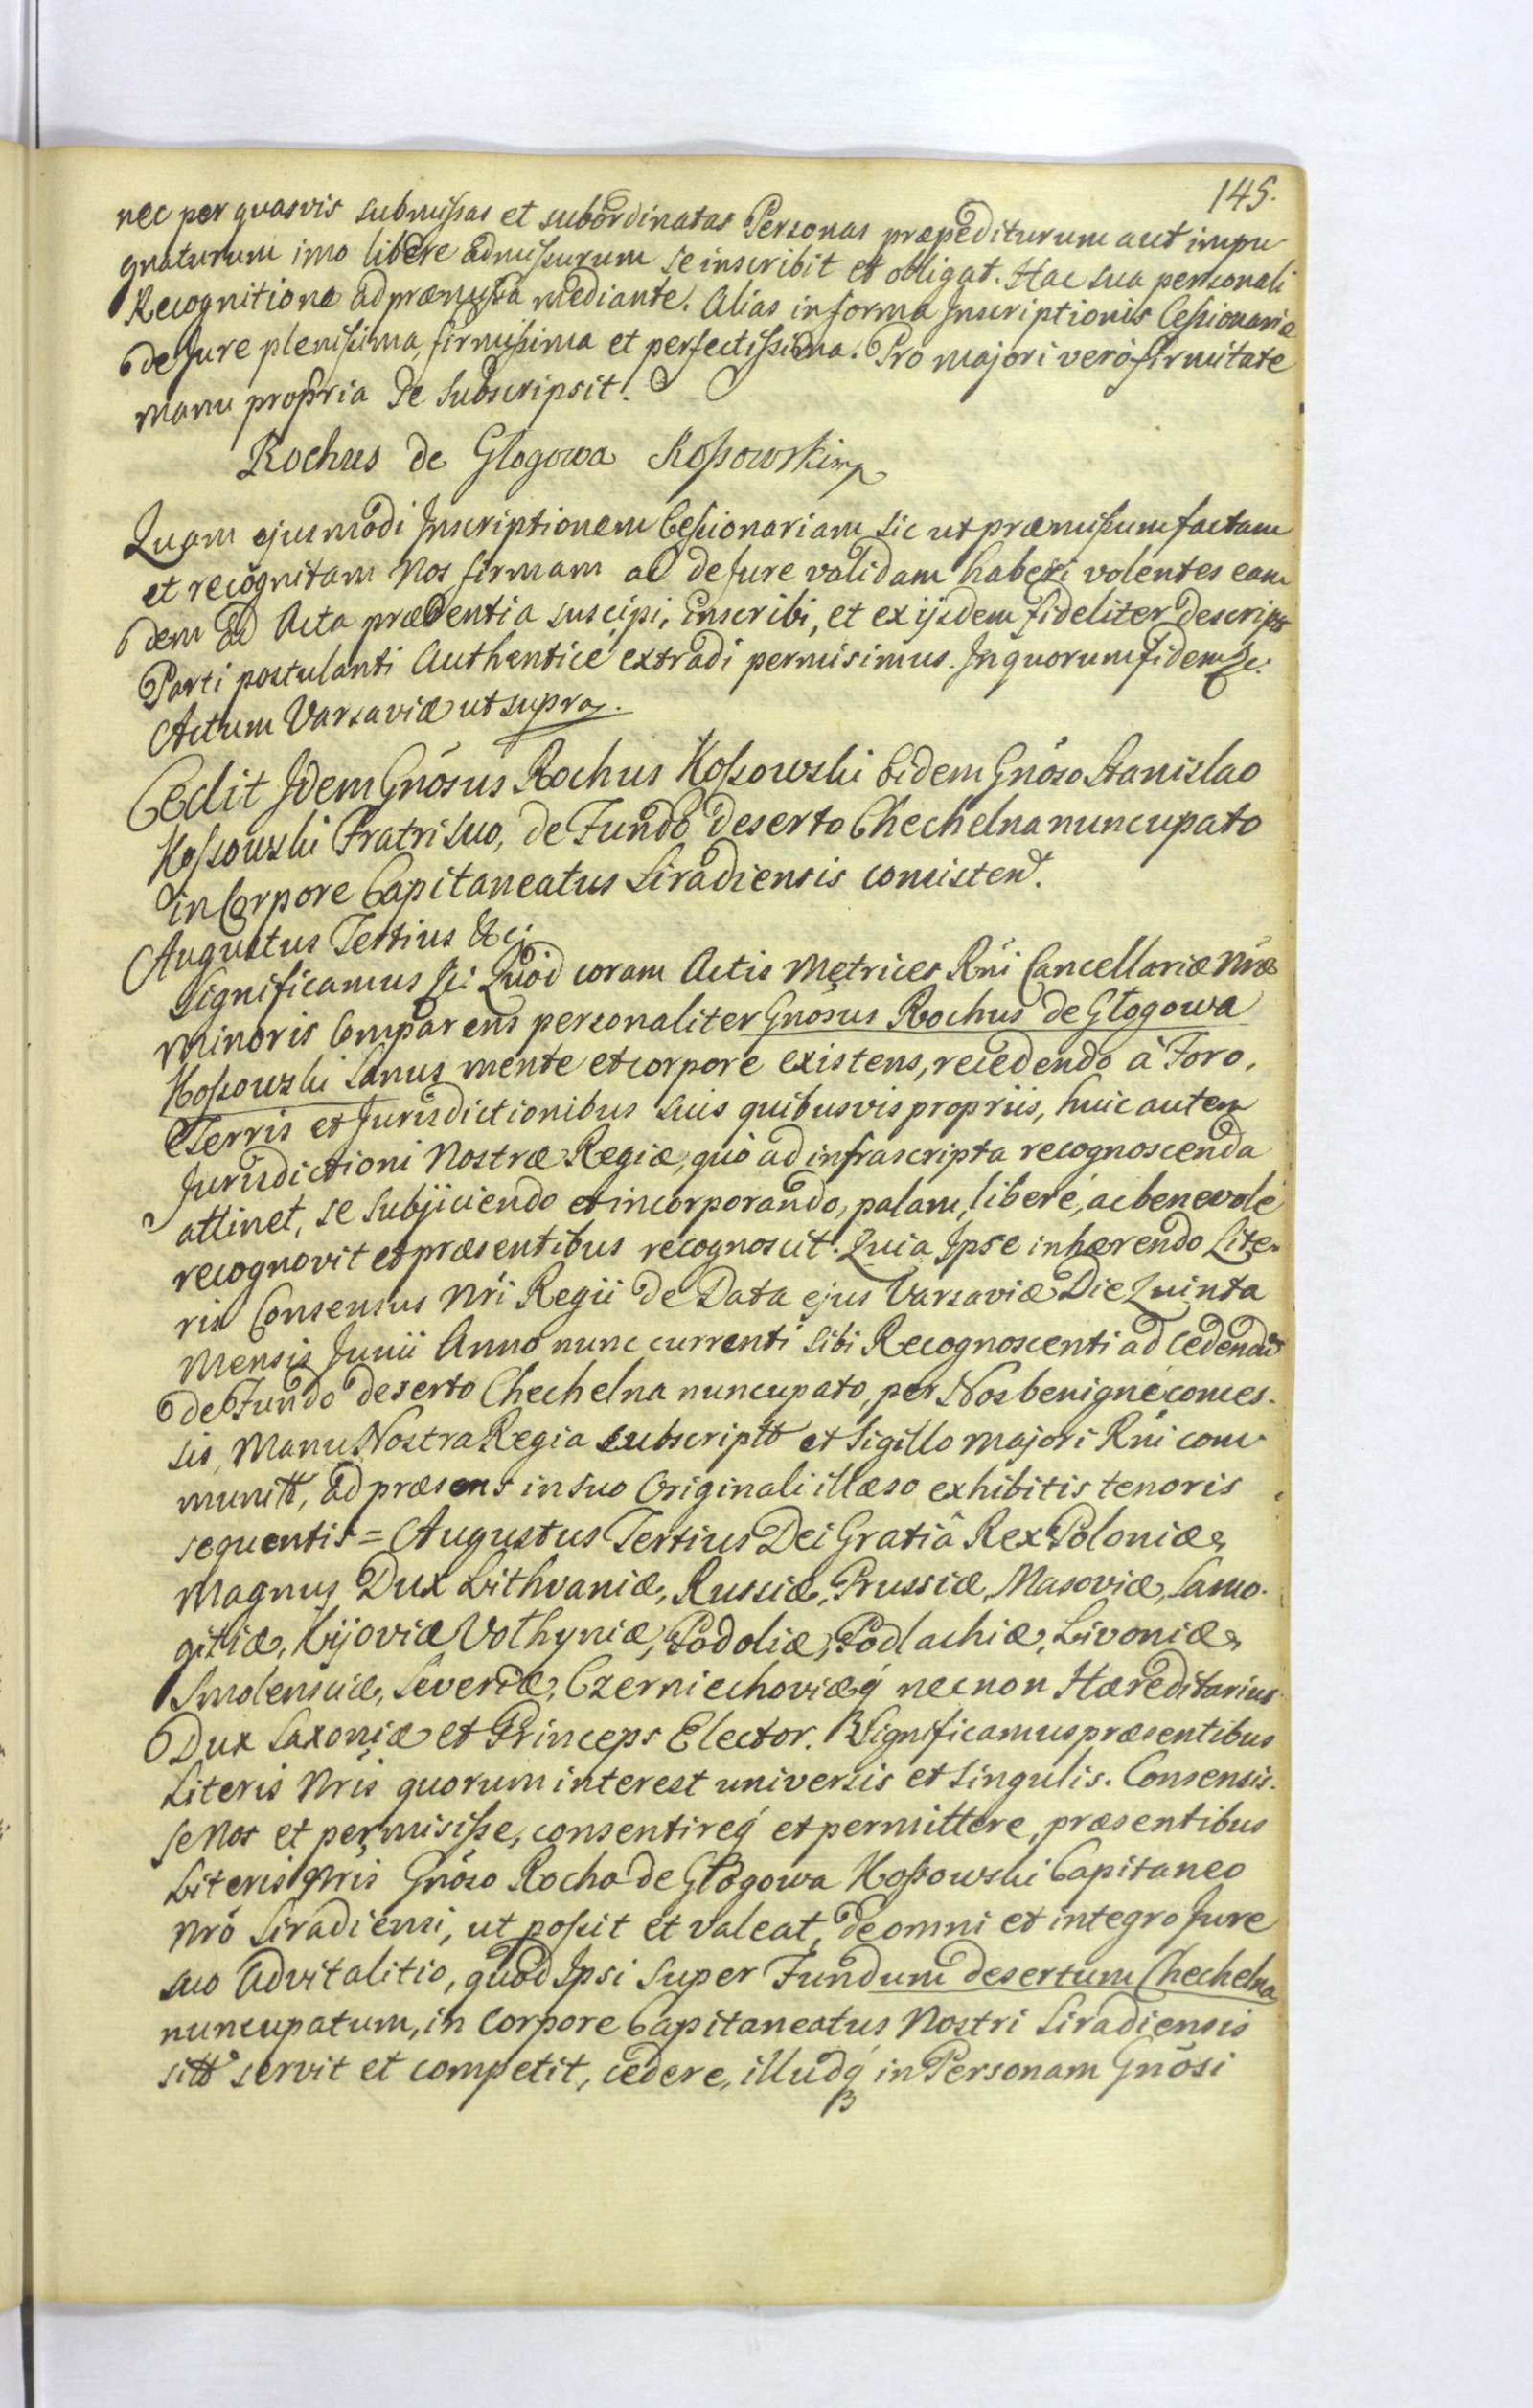 145.
nec per quasvis submissas et subordinatas Personas præpediturum aut impu
gnaturum imo libere admissurum se inscribit et obligat. Hac sua personali
Recognitione ad præmissa mediante. Alias in forma Inscriptionis Cessionariæ
de Jure plenissima, firmissima et perfectissima. Pro majori verò firmitate
manu propria se subscripsit.
Rochus de Glogowa Kossowski mp
Quam ejusmodi Inscriptionem Cessionariam sic ut præmissum factam
et recognitam Nos firmam ac de Jure validam haberi volentes eam
dem ad Acta præsentia suscipi, inscribi, et ex ijsdem fideliter descript
Parti postulanti Authenticè extradi permisimus. In quorum fidem &c:
Actum Varsaviæ ut supra.
Cedit Idem Gnõsus Rochus Kossowski Eidem Gnõso Stanislao
Kossowski Fratri suo, de Fundo deserto Chechelna nuncupato
in Corpore Capitaneatus Siradiensis consisten.
Augustus Tertius &c:
Significamus &c: Quòd coram Actis Metrices Rñi Cancellariæ Nræ
Minoris Comparens personaliter Gnõsus Rochus de Głogowa
Kossowski Sanus mente et corpore existens, recedendo à Foro,
Terris et Jurisdictionibus suis quibusvis propriis, huic autem
Jurisdictioni Nostræ Regiæ, quò ad infrascripta recognoscenda
attinet, se subjiciendo et incorporando, palam, liberè, ac benevolè
recognovit et præsentibus recognoscit. Quia Ipse inhærendo Lite-
ris Consensus Nri Regii de Data ejus Varsaviæ Die Quinta
Mensis Junii Anno nunc currenti sibi Recognoscenti ad cedend
de Fundo deserto Chechelna nuncupato, per Nos benignè conces-
sis, Manu Nostra Regia subscriptt et Sigillo majori Rñi com
munitt, ad præsens in suo Originali illæso exhibitis tenoris
sequentis = Augustus Tertius Dei Gratiâ Rex Poloniæ,
Magnus Dux Lithvaniæ, Russiæ, Prussiæ, Masoviæ, Samo-
gitiæ, Kijoviæ Volhyniæ, Podoliæ, Podlachiæ, Livoniæ,
Smolensciæ, Severiæ, Czerniechoviæq́ necnon Hæreditarius
Dux Saxoniæ et Princeps Elector. Significamus præsentibus
Literis Nris quorum interest universis et singulis. Consensis-
se Nos et permisisse, consentireq́ et permittere, præsentibus
Literis Nris Gnõso Rocho de Głogowa Kossowski Capitaneo
Nrõ Siradiensi, ut possit et valeat, de omni et integro Jure
suo Advitalitio, quod Ipsi super Fundum desertum Chechelna
nuncupatum, in Corpore Capitaneatus Nostri Siradiensis
sitt servit et competit, cedere, illudq́ in Personam Gnõsi